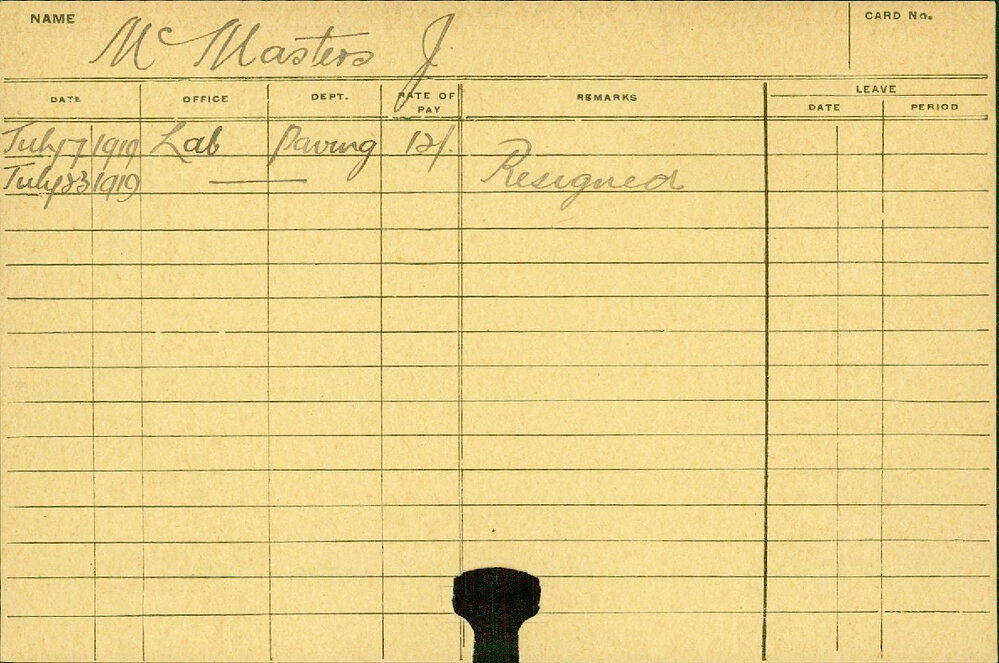 NAME Mc Masters J. CARD No.
DATE OFFICE DEPT. RATE OF PAY REMARKS LEAVE
DATE PERIOD
July 17 1919 Lab Paving 12/.
July 23 1919 —— Resigned